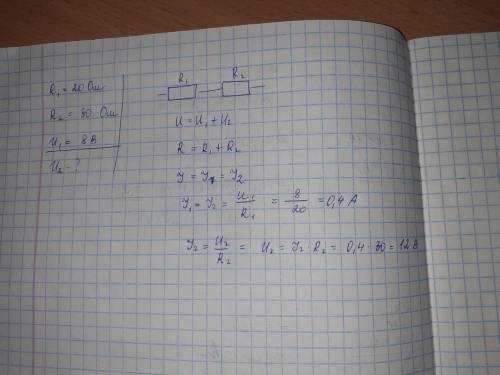 R₁ = 20 Ом
R₂ = 30 Ом
U₁ = 8 В
U₂ - ?
R₁ R₂
U = U₁ + U₂
R = R₁ + R₂
I = I₁ = I₂
I₁ = I₂ = U₁/R₁ = 8/20 = 0,4 А
I₂ = U₂/R₂ = U₂ = I₂ R₂ = 0,4 · 30 = 12 В